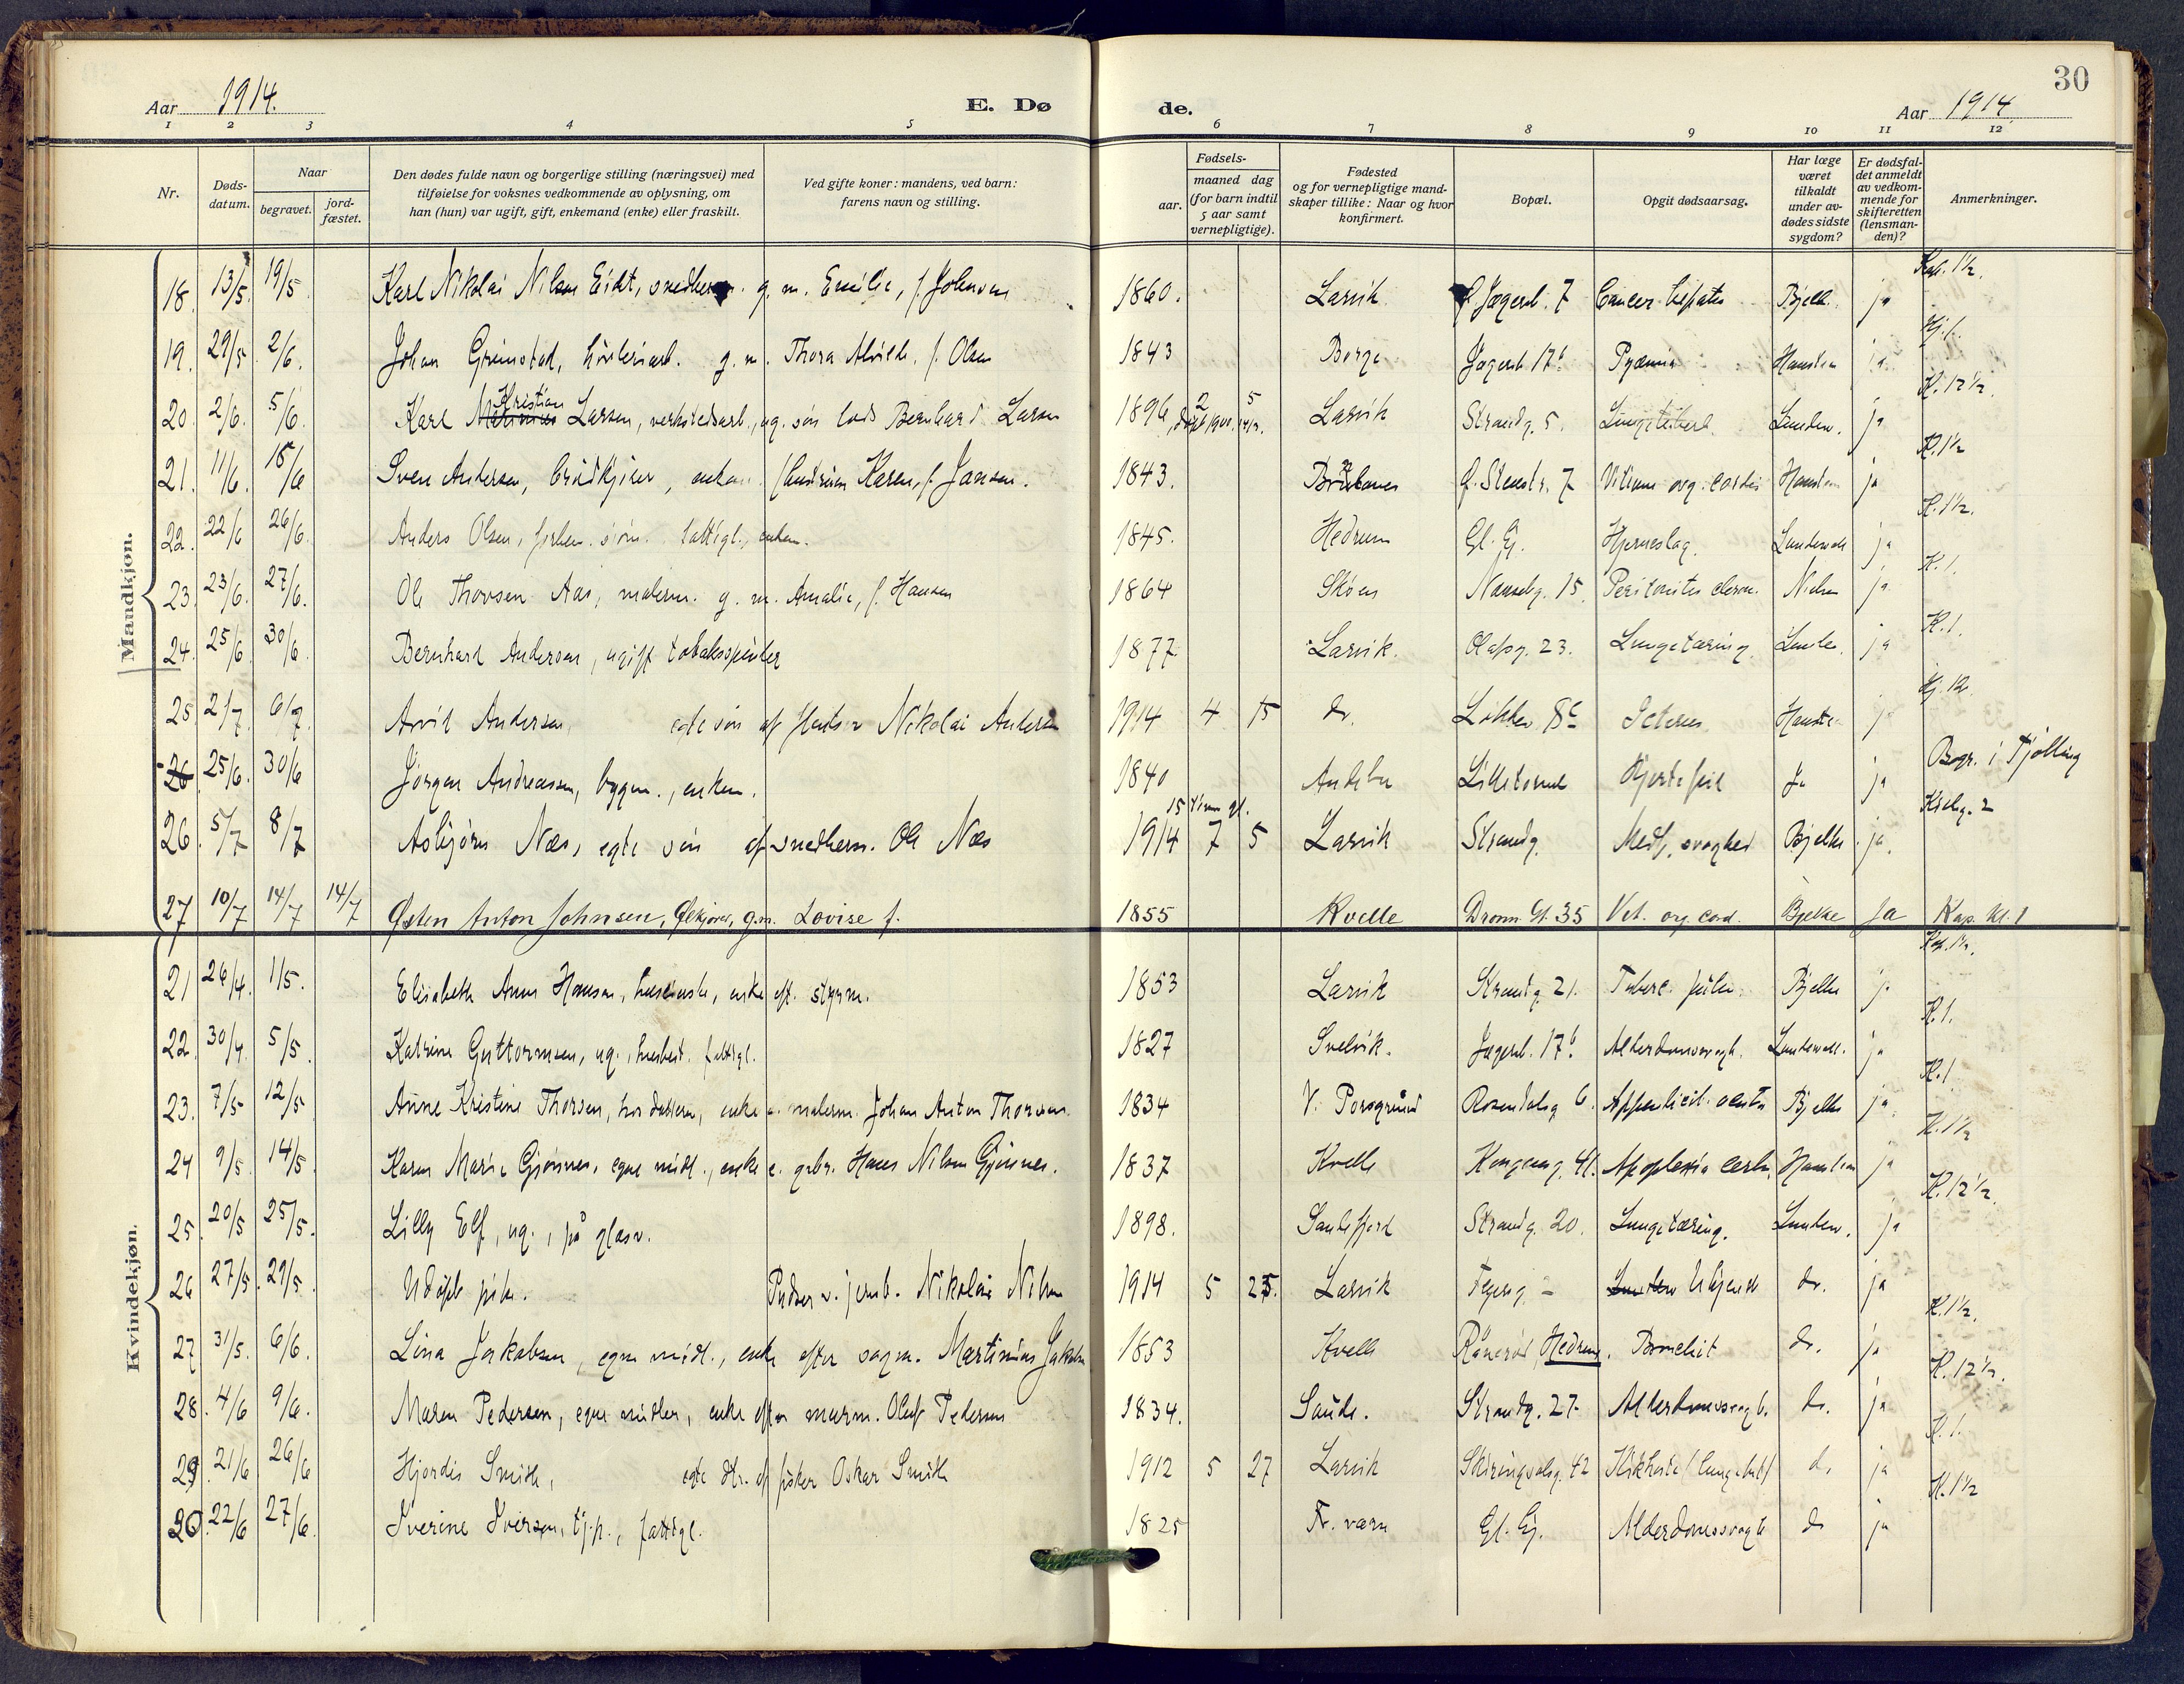 30
Aar 1914. E. Dø de. Aar 1914.
1 2 3 4 5 6 7 8 9 10 11 12
Nr. Døds-datum. Naar begravet. jord-fæstet. Den dødes fulde navn og borgerlige stilling (næringsvei) med tilføielse for voksnes vedkommende av oplysning, om han (hun) var ugift, gift, enkemand (enke) eller fraskilt. Ved gifte koner: mandens, ved barn: farens navn og stilling. Fødsels- aar. maaned dag (for barn indtil 5 aar samt vernepligtige). Fødested og for vernepligtige mandskaper tillike: Naar og hvor konfirmert. Bopæl. Opgit dødsaarsag. Har læge været tilkaldt under avdødes sidste sygdom? Er dødsfaldet anmeldt av vedkommende for skifteretten (lensmanden)? Anmerkninger.
Mandkjøn.
18. 13/5 19/5 Karl Nikolai Nilsen Eidt, g. m. Emilie, f. Johnsen 1860. Larvik Jegersb. 7 Cancer hepatis Bjelk. ja Kap. 1½.
19. 29/5 2/6. Johan Grimstad, g. m. Thora Alvilde, f. Olsen 1843 Borge Jegersb. 17b Pyæmia ja Kj. 1.
20. 2/6. 5/6. Karl Kristian Larsen, verkstedsarb., ug. søn Bernhard Larsen 1896, 2 5 Larvik Strandg. 5. Lungetuberk. Lundew. ja K. 12½.
21. 11/6. 15/6 Sven Andersen, enkem. Karen, f. Jansen. 1843. Brunlanes Stenstr. 7 Vitium org. cordis ja K. 1½
22. 22/6 26/6. Anders Olsen, fattigl., enkem. 1845. Hedrum Gl. Ej. Hjerneslag. Lundewall ja K. 1½.
23. 23/6. 27/6. Ole Thovsen Aas, malerm. g. m. Amalie, f. Hansen 1864 Skøien Nanseteg. 15. Peritonitis Nielsen ja K. 1.
24. 25/6. 30/6. Bernhard Andersen, ugift tobaksspinder 1877 Larvik. Olafsg. 23. Lungetæring. ja K. 1.
25. 2/7. 6/7. Arvid Andersen, egte søn af Nikolai Andersen 1914 4 15 do. Løkken 8c Icterus ja Kj. 12.
26 25/6. 30/6 Jørgen Andreassen, bygm., enkem. 1840 Andebu Lilletorvet Hjertefeil Ja ja Begr. i Tjølling
26. 5/7 8/7 Asbjørn Næs, egte søn af snedkerm. Ole Næs 15 timer gl. 1914 7 5 Larvik Strandg. Medf. svaghed Bjelke ja. Kirkeg. 2
27 10/7 14/7 14/7 Østen Anton Johnsen, Ølkjører, g. m. Lovise f. 1855 Kvelle Dronn. Gt. 35 Vit. org. cord. Bjelke Ja Kap. kl. 1
Kvindekjøn.
21 26/4. 1/5. Elisabeth Anne Hansen, enke eft. styrm. 1853 Larvik Strandg. 21. Tuberc. pulm. Bjelke ja Kap. 1½.
22. 30/4. 5/5. Katrine Guttormsen, ug., fattigl. 1827 Svelvik. Jegersb. 17b. Alderdomssvagh. Lundewall. ja K. 1.
23. 7/5 12/5. Anne Kristine Thorsen, hos datteren, enke e. malerm. Johan Anton Thorsen. 1834 V. Porsgrund Rosendalsg. 6. Appendicit. acuta Bjelke ja. K. 1.
24 9/5. 14/5. Karen Marie Gjønnes, egne midl., enke e. grbr. Hans Nilsen Gjønnes. 1837 Kvelle Kongeg. 41. Apoplexia cerebr. ja K. 1½
25. 20/5 25/5. Lilly Elf, ug., på glasv. 1898. Sandefjord Strandg. 20. Lungetæring. Lundew. ja K. 12½.
26 27/5. 29/5. Udøpt pike. Pudser v. jernb. Nikolai Nilsen 1914 5 25. Larvik Fegerg. 2 Ukjendt do. ja
27. 31/5. 6/6. Lina Jakobsen, egne midl., enke efter sagm. Martinius Jakobsen 1853 Kvelle Rånerød, Hedrum. Bronchit do. ja K. 1½.
28. 4/6 9/6. Maren Pedersen, egne midler, enke efter murm. Oluf Pedersen 1834. Saude. Strandg. 27. Alderdomssvagh. do. ja K. 12½.
29. 21/6 26/6 Hjørdis Smith, egte dtr. af fisker Oskar Smith 1912 5 27 Larvik Skiringsalsg. 42 Kikhoste (lungebet.) do ja K. 1.
20. 22/6 27/6. Iverine Iversen, tj.p., fattigl. 1825 Fr. værn Gl. Ej. Alderdomssvagh do ja K. 1½